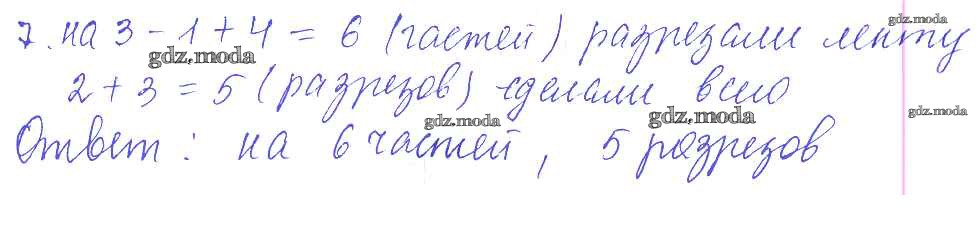 7. на 3 - 1 + 4 = 6 (частей) разрезали ленту
2 + 3 = 5 (разрезов) сделали всего
Ответ: на 6 частей, 5 разрезов
gdz.moda
gdz.moda
gdz.moda
gdz.moda
gdz.moda